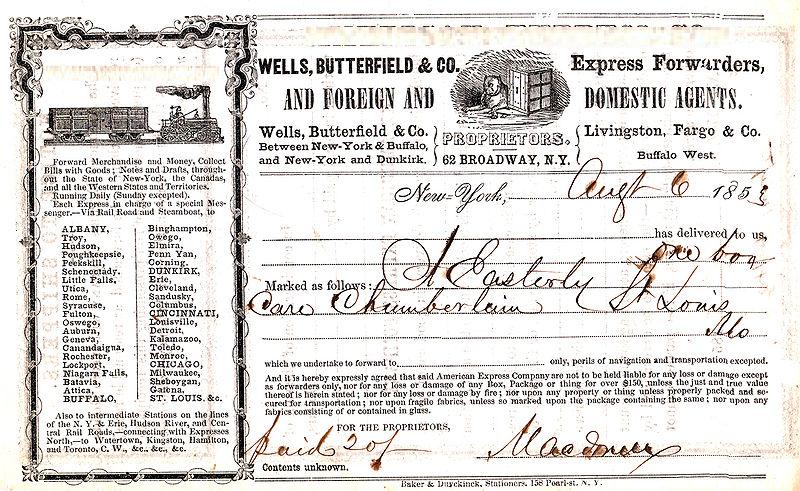 WELLS, BUTTERFIELD & CO.
Express Forwarders,
AND FOREIGN AND
DOMESTIC AGENTS.
Wells, Butterfield & Co.
Between New-York & Buffalo,
and New-York and Dunkirk.
PROPRIETORS.
62 BROADWAY, N.Y.
Livingston, Fargo & Co.
Buffalo West.
Forward Merchandise and Money, Collect
Bills with Goods; Notes and Drafts, through-
out the State of New-York, the Canadas,
and all the Western States and Territories.
Running Daily (Sunday excepted).
Each Express in charge of a special Mes-
senger.—Via Rail Road and Steamboat, to
ALBANY,
Troy,
Hudson,
Poughkeepsie,
Peekskill,
Schenectady.
Little Falls,
Utica,
Rome,
Syracuse,
Fulton,
Oswego,
Auburn,
Geneva,
Canandaigna,
Rochester,
Lockport,
Niagara Falls,
Batavia,
Attica,
BUFFALO,
Binghampton,
Owego,
Elmira,
Penn Yan,
Corning.
DUNKIRK,
Erie,
Cleveland,
Sandusky,
Columbus,
CINCINNATI,
Louisville,
Detroit,
Kalamazoo,
Toledo,
Monroe,
CHICAGO,
Milwaukee,
Sheboygan,
Gatena,
ST. LOUIS, &c.
Also to intermediate Stations on the lines
of the N. Y. & Erie, Hudson River, and Cen-
tral Rail Roads,—connecting with Expresses
North,—to Watertown, Kingston, Hamilton,
and Toronto, C. W., &c., &c., &c.
New-York, Augt 6 1853
has delivered to us,
one box
Marked as follows: A Easterly
Care Chamberlain St Louis
Mo
which we undertake to forward to only, perils of navigation and transportation excepted.
And it is hereby expressly agreed that said American Express Company are not to be held liable for any loss or damage except
as forwarders only, nor for any loss or damage of any Box, Package or thing for over $150, unless the just and true value
thereof is herein stated; nor for any loss or damage by fire; nor upon any property or thing unless properly packed and se-
cured for transportation; nor upon fragile fabrics, unless so marked upon the package containing the same; nor upon any
fabrics consisting of or contained in glass.
FOR THE PROPRIETORS,
paid 20/
Contents unknown.
Baker & Duyckinck, Stationers, 158 Pearl-st. N. Y.